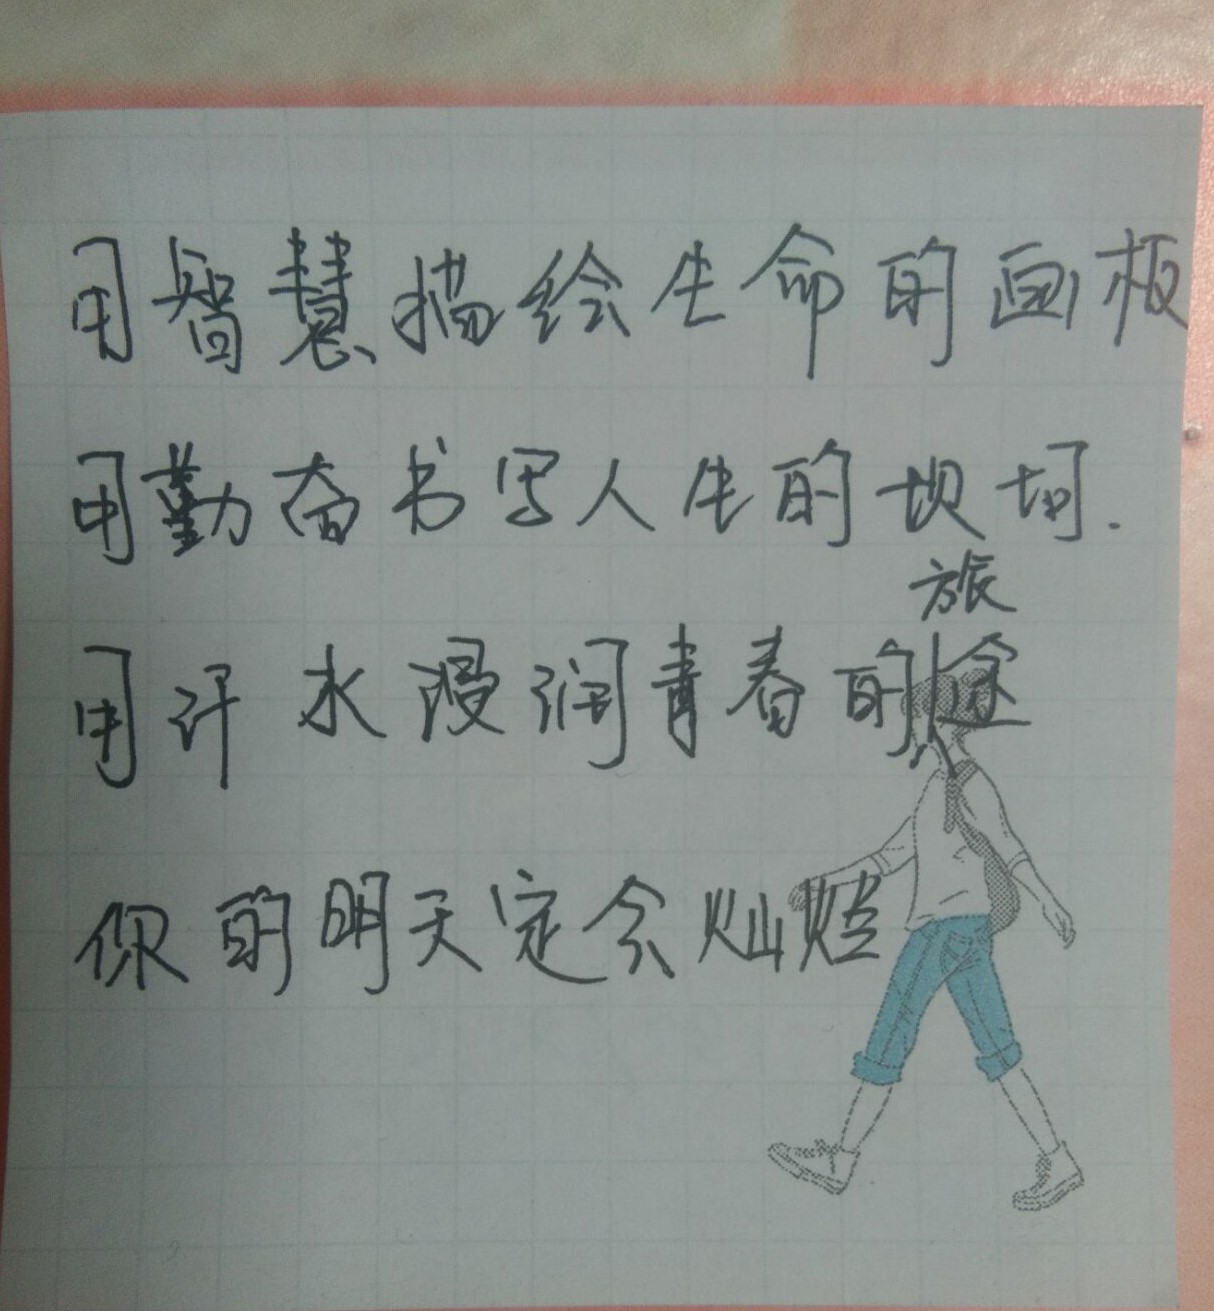 用智慧描绘生命的画板
用勤奋书写人生的坝坷.
用汗水漫润青春的旅途
你的明天定会灿烂